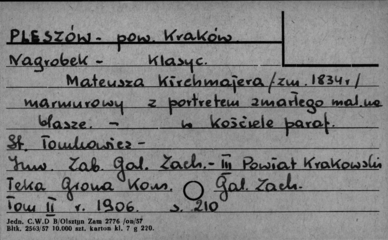 PLESZÓW - pow. Kraków
Nagrobek - klasyc.
Mateusza Kirchmajera /zm. 1834 r/
marmurowy z portretem zmarłego mal. na
blasze. - w kościele paraf.
St. Tomkowicz -
Inw. Zab. Gal. Zach. - III Powiat Krakowski
Teka Grona Kons. Gal. Zach.
Tom II r. 1906. s. 210
Jedn. C.W.D B/Olsztyn Zam 2776 /on/57
Bltk. 2563/57 10.000 szt. karton kl. 7 g 220.